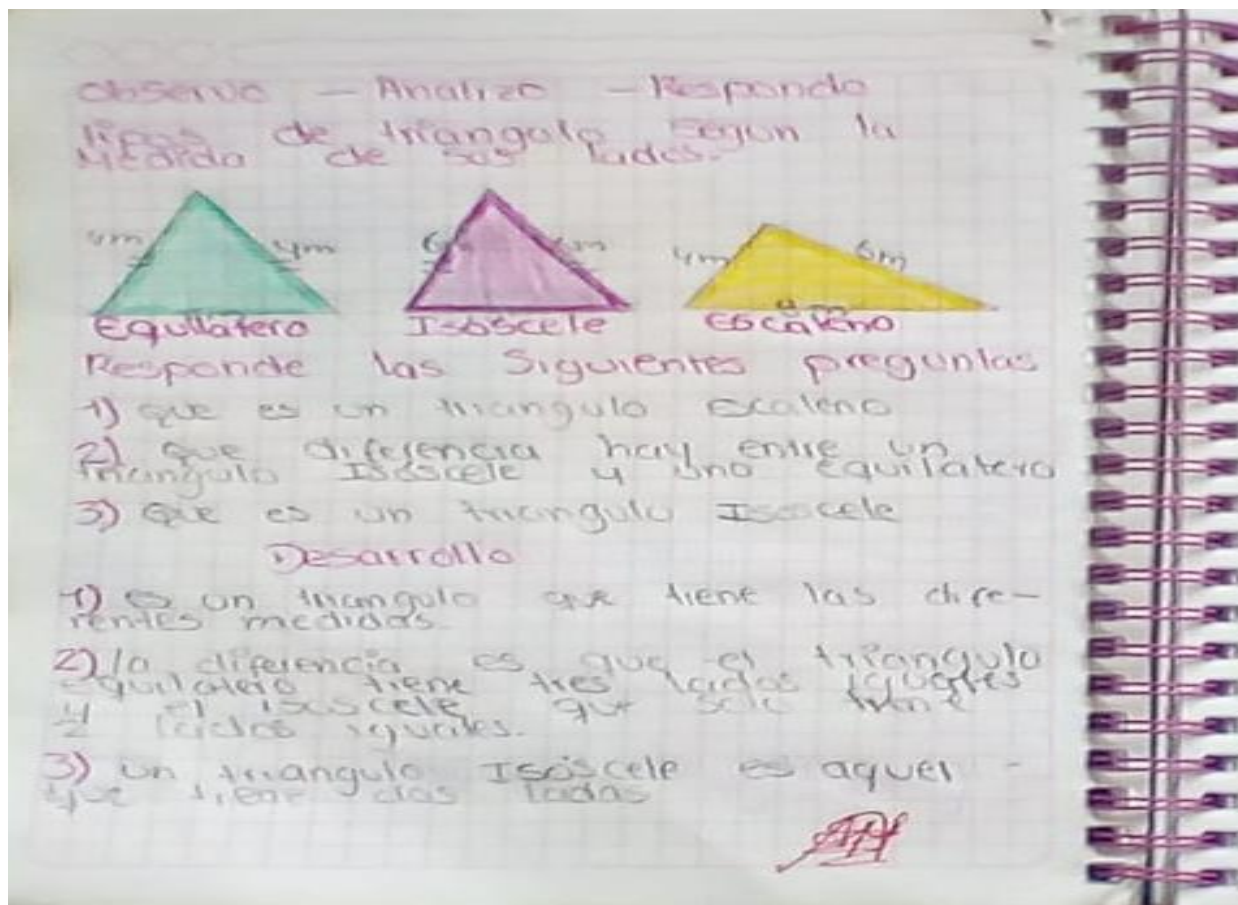 Observo - Analizo - Respondo
tipos de triangulo segun la
Medida de sus lados.
4m 4m 6m 4m 6m
Equilatero Isóscele escaleno
Responde las Siguientes preguntas
1) que es un triangulo escaleno
2) que diferencia hay entre un
triangulo Isóscele y uno equilatero
3) Que es un triangulo Isóscele
Desarrollo
1) es un triangulo que tiene las dife-
rentes medidas.
2) la diferencia es que el triangulo
equilatero tiene tres lados iguales
y el isóscele que solo tiene
2 lados iguales.
3) un triangulo Isóscele es aquel -
que tiene dos lados